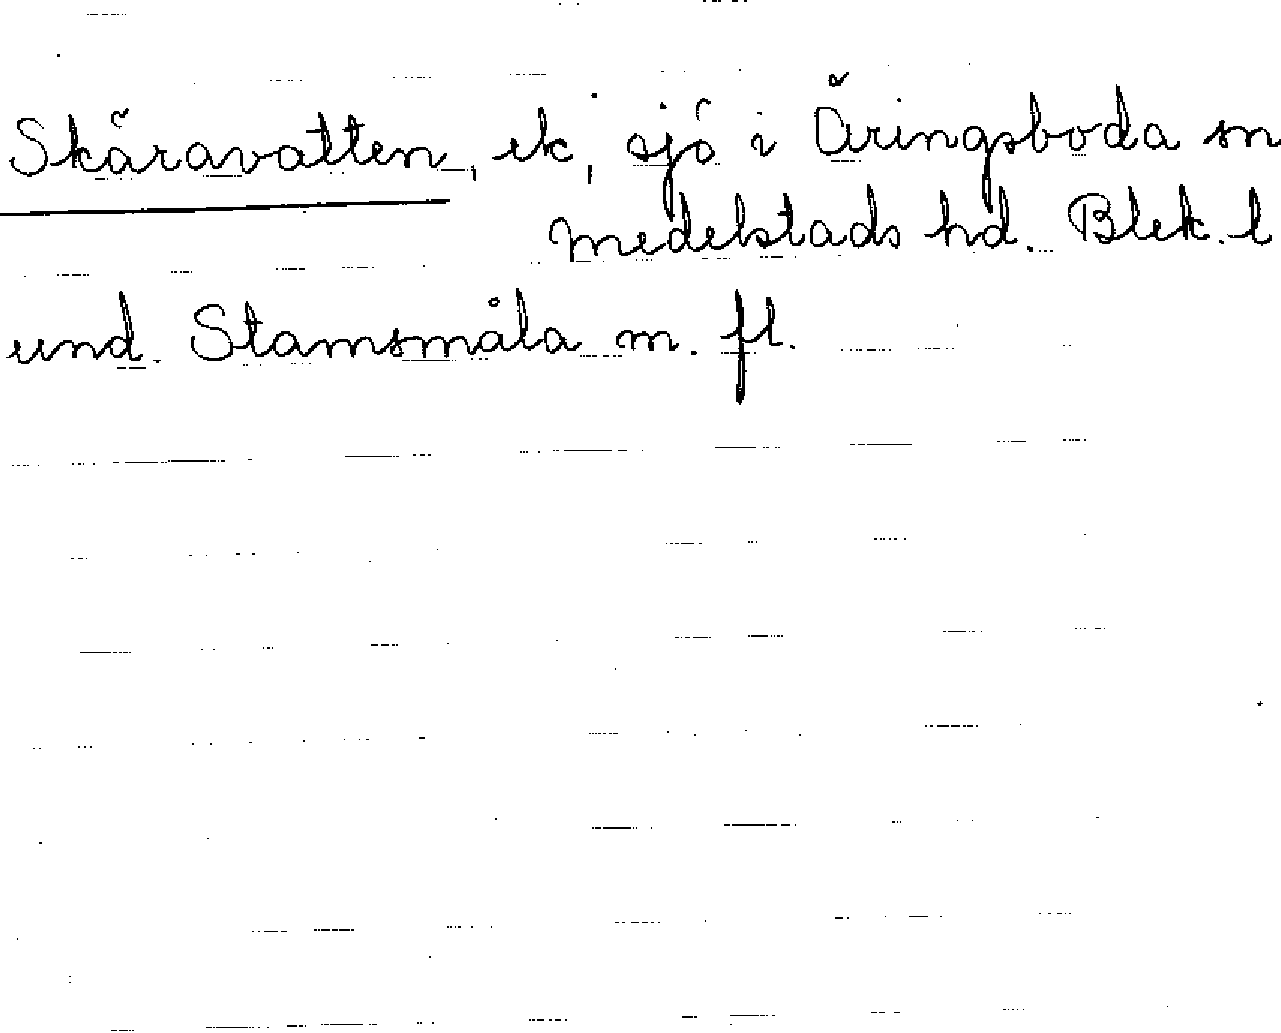 Skäravatten, ek, sjö i Öringsboda sn
Medelstads hd. Blek. l
und. Stamsmåla m. fl.